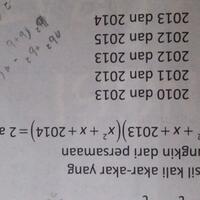 sil kali akar-akar yang
ngkin dari persamaan
² + x + 2013)(x² + x + 2014) = 2
2010 dan 2013
2011 dan 2012
2012 dan 2013
2012 dan 2015
2013 dan 2014